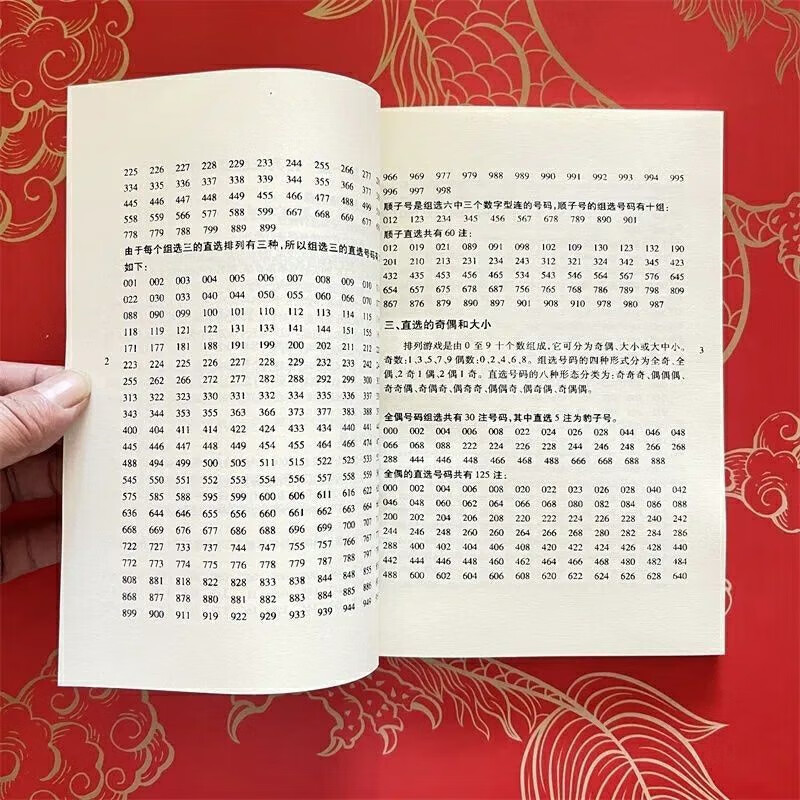 225 226 227 228 229 233 244 255 266 277
334 335 336 337 338 339 344 355 366 377
445 446 447 448 449 455 466 477 488 499
558 559 566 577 588 599 667 668 669 677
778 779 788 799 889 899
由于每个组选三的直选排列有三种,所以组选三的直选号码
如下:
001 002 003 004 005 006 007 008 009 010
022 030 033 040 044 050 055 060 066 070
088 090 099 100 101 110 112 113 114 115
118 119 121 122 131 133 141 144 151 155
171 177 181 188 191 199 200 202 211 212
2
223 224 225 226 227 228 229 232 233 242
255 262 266 272 277 282 288 292 299 300
313 322 323 330 331 332 334 335 336 337
343 344 353 355 363 366 373 377 383 388
400 404 411 414 422 424 433 434 440 441
445 446 447 448 449 454 455 464 466 474
488 494 499 500 505 511 515 522 525 533
545 550 551 552 553 554 556 557 558 559
575 577 585 588 595 599 600 606 611 616 622
636 644 646 655 656 660 661 662 663 664
668 669 676 677 686 688 696 699 700 707
722 727 733 737 744 747 755 757 766 767
772 773 774 775 776 778 779 787 788 797
808 811 818 822 828 833 838 844 848 855
868 877 878 880 881 882 883 884 885 886
899 900 911 919 922 929 933 939 944 949
966 969 977 979 988 989 990 991 992 993 994 995
996 997 998
顺子号是组选六中三个数字型连的号码,顺子号的组选号码有十组:
012 123 234 345 456 567 678 789 890 901
顺子直选共有 60 注:
012 019 021 089 091 098 102 109 120 123 132 190
201 210 213 231 234 243 312 321 324 342 345 423
432 435 453 456 465 534 543 546 564 567 576 645
654 657 675 678 687 756 765 768 786 789 798 809
867 876 879 890 897 901 908 910 978 980 987
三、直选的奇偶和大小
排列游戏是由 0 至 9 十个数组成,它可分为奇偶、大小或大中小。
奇数:1,3,5,7,9 偶数:0,2,4,6,8。组选号码的四种形式分为全奇、全
3
偶,2 奇 1 偶,2 偶 1 奇。直选号码的八种形态分类为:奇奇奇、偶偶偶、
奇奇偶、奇偶奇、偶奇奇、偶偶奇、偶奇偶、奇偶偶。
全偶号码组选共有 30 注号码,其中直选 5 注为豹子号。
000 002 004 006 008 022 024 026 028 044 046 048
066 068 088 222 224 226 228 244 246 248 266 268
288 444 446 448 466 468 488 666 668 688 888
全偶的直选号码共有 125 注:
000 002 004 006 008 020 022 023 026 028 040 042
046 048 060 062 064 066 068 080 082 084 086 088
200 202 204 206 208 220 222 224 226 228 240 242
244 246 248 260 262 264 266 268 280 282 284 286
288 400 402 404 406 408 420 422 424 426 428 440
442 444 446 448 460 462 464 466 468 480 482 484
488 600 602 604 606 608 620 622 624 626 628 640